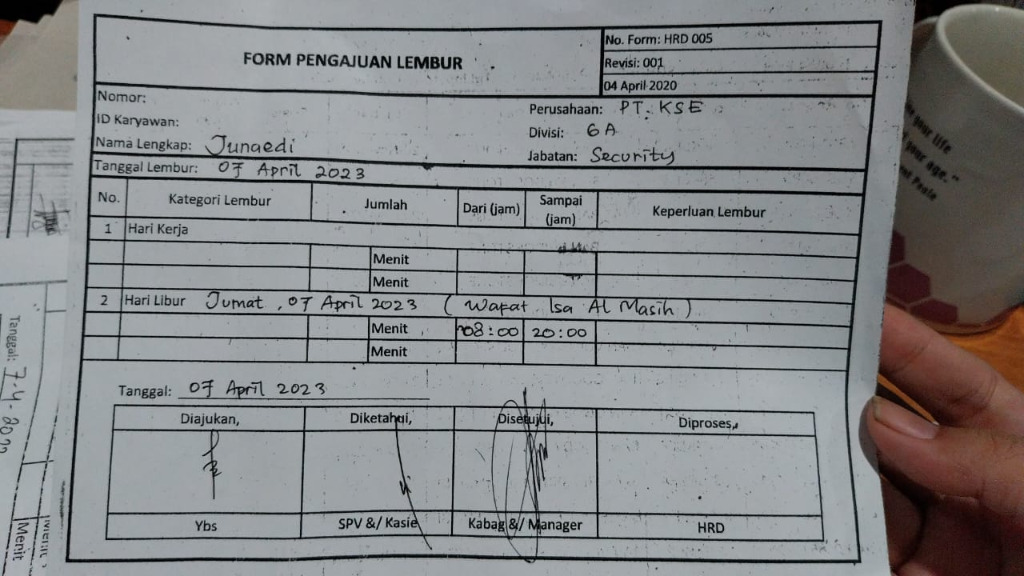 FORM PENGAJUAN LEMBUR
No. Form: HRD 005
Revisi: 001
04 April 2020
Nomor:
ID Karyawan:
Nama Lengkap: Junaedi
Perusahaan: PT. KSE
Divisi: 6A
Jabatan: Security
Tanggal Lembur: 07 April 2023
No. Kategori Lembur Jumlah Dari (jam) Sampai (jam) Keperluan Lembur
1 Hari Kerja
Menit
Menit
2 Hari Libur Jumat, 07 April 2023 ( Wafat Isa Al Masih )
Menit 08:00 20:00
Menit
Tanggal: 07 April 2023
Diajukan, Diketahui, Disetujui, Diproses,
Ybs SPV &/ Kasie Kabag &/ Manager HRD
your life
your age."
Tanggal: 7-4-202
Menit